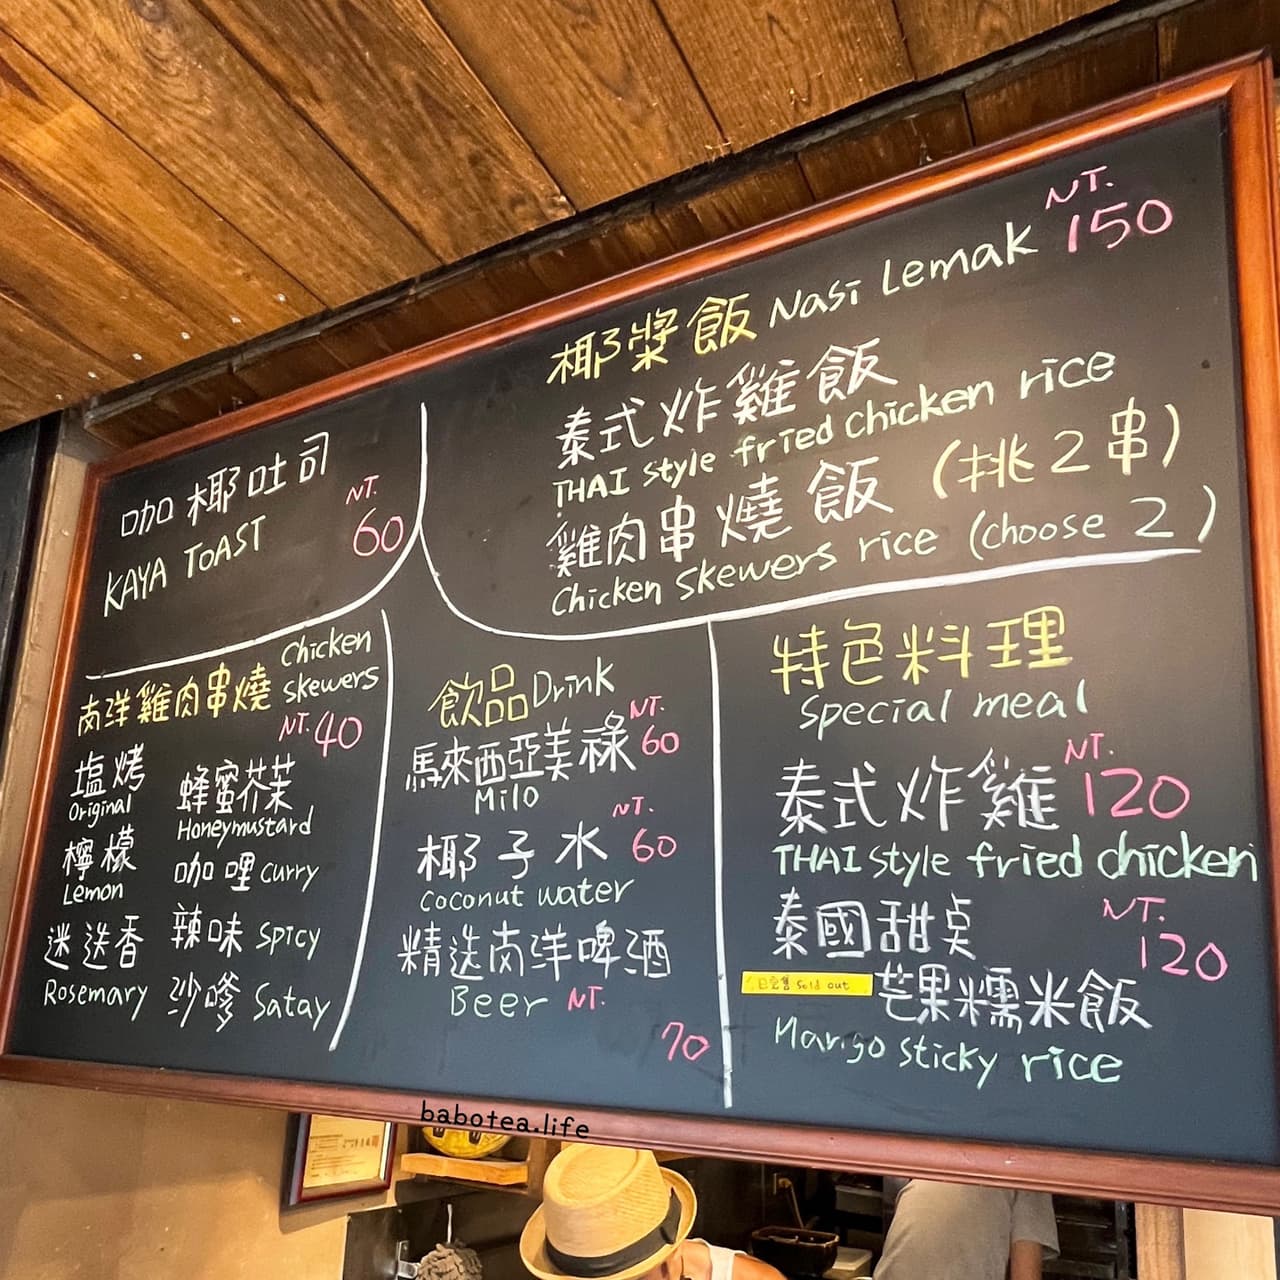 椰漿飯 Nasi Lemak NT. 150
泰式炸雞飯
THAI style fried chicken rice
雞肉串燒飯 (挑2串)
Chicken Skewers rice (choose 2)
咖椰吐司
KAYA TOAST
NT. 60
南洋雞肉串燒 Chicken skewers
NT. 40
塩烤
Original
檸檬
Lemon
迷迭香
Rosemary
蜂蜜芥茉
Honeymustard
咖哩 curry
辣味 spicy
沙嗲 Satay
飲品 Drink
馬來西亞美祿 NT. 60
Milo
椰子水 NT. 60
coconut water
精选南洋啤酒
Beer NT. 70
特色料理
special meal
泰式炸雞 NT. 120
THAI style fried chicken
泰國甜桌 NT. 120
已完售 sold out
芒果糯米飯
Mango sticky rice
babotea.life